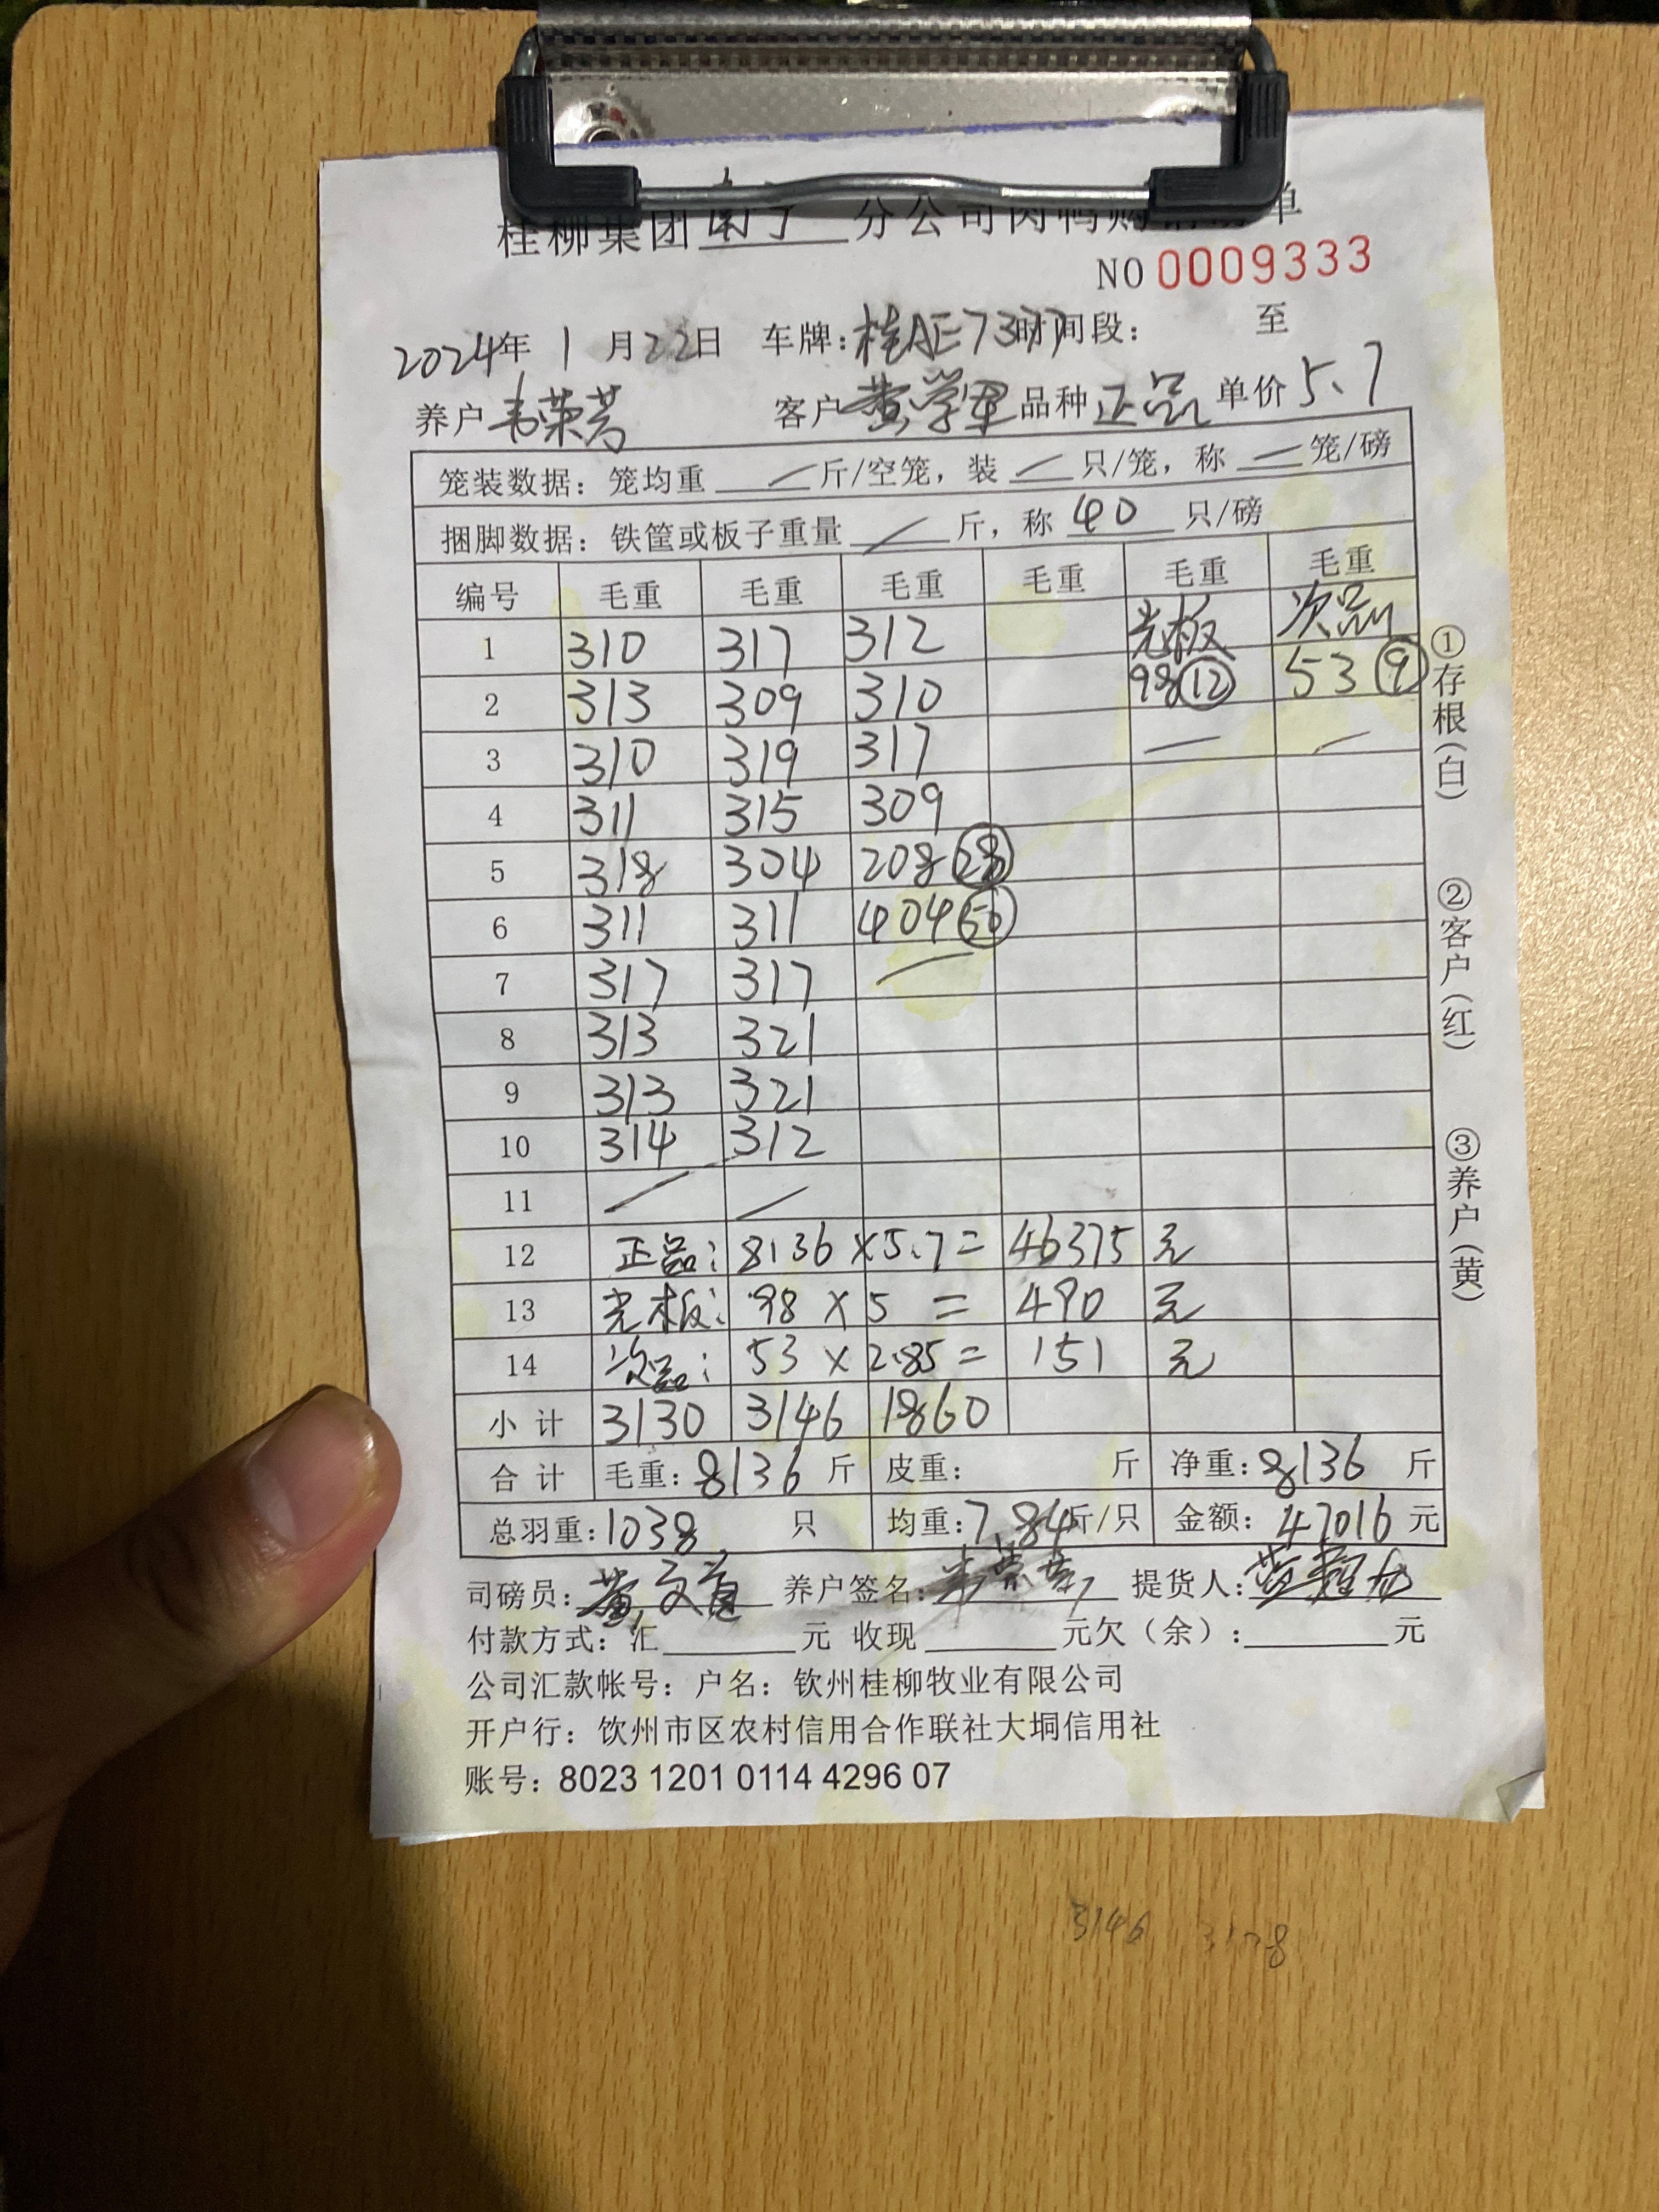 桂柳集团南宁分公司肉鸭购销磅单
NO 0009333
2024年 1 月22日 车牌:桂AE7377时间段: 至
养户 韦荣芳 客户 黄学军 品种 正品 单价 5.7
笼装数据: 笼均重 / 斤/空笼, 装 / 只/笼, 称 / 笼/磅
捆脚数据: 铁筐或板子重量 / 斤, 称 40 只/磅
编号 毛重 毛重 毛重 毛重 毛重 毛重
1 310 317 312 光板 次品
2 313 309 310 98 12 53 9
3 310 319 317 — —
4 311 315 309
5 318 304 208 28
6 311 311 404 50
7 317 317 —
8 313 321
9 313 321
10 314 312
11 / /
12 正品: 8136 × 5.7 = 46375 元
13 光板: 98 × 5 = 490 元
14 次品: 53 × 2.85 = 151 元
小计 3130 3146 1860
合计 毛重: 8136 斤 皮重: 斤 净重: 8136 斤
总羽重: 1038 只 均重: 7.84斤/只 金额: 47016 元
司磅员: 黄 养户签名: 韦荣芳 提货人:
付款方式: 汇 元 收现 元欠(余): 元
公司汇款帐号: 户名: 钦州桂柳牧业有限公司
开户行: 饮州市区农村信用合作联社大垌信用社
账号: 8023 1201 0114 4296 07
①存根(白)
②客户(红)
③养户(黄)
3146